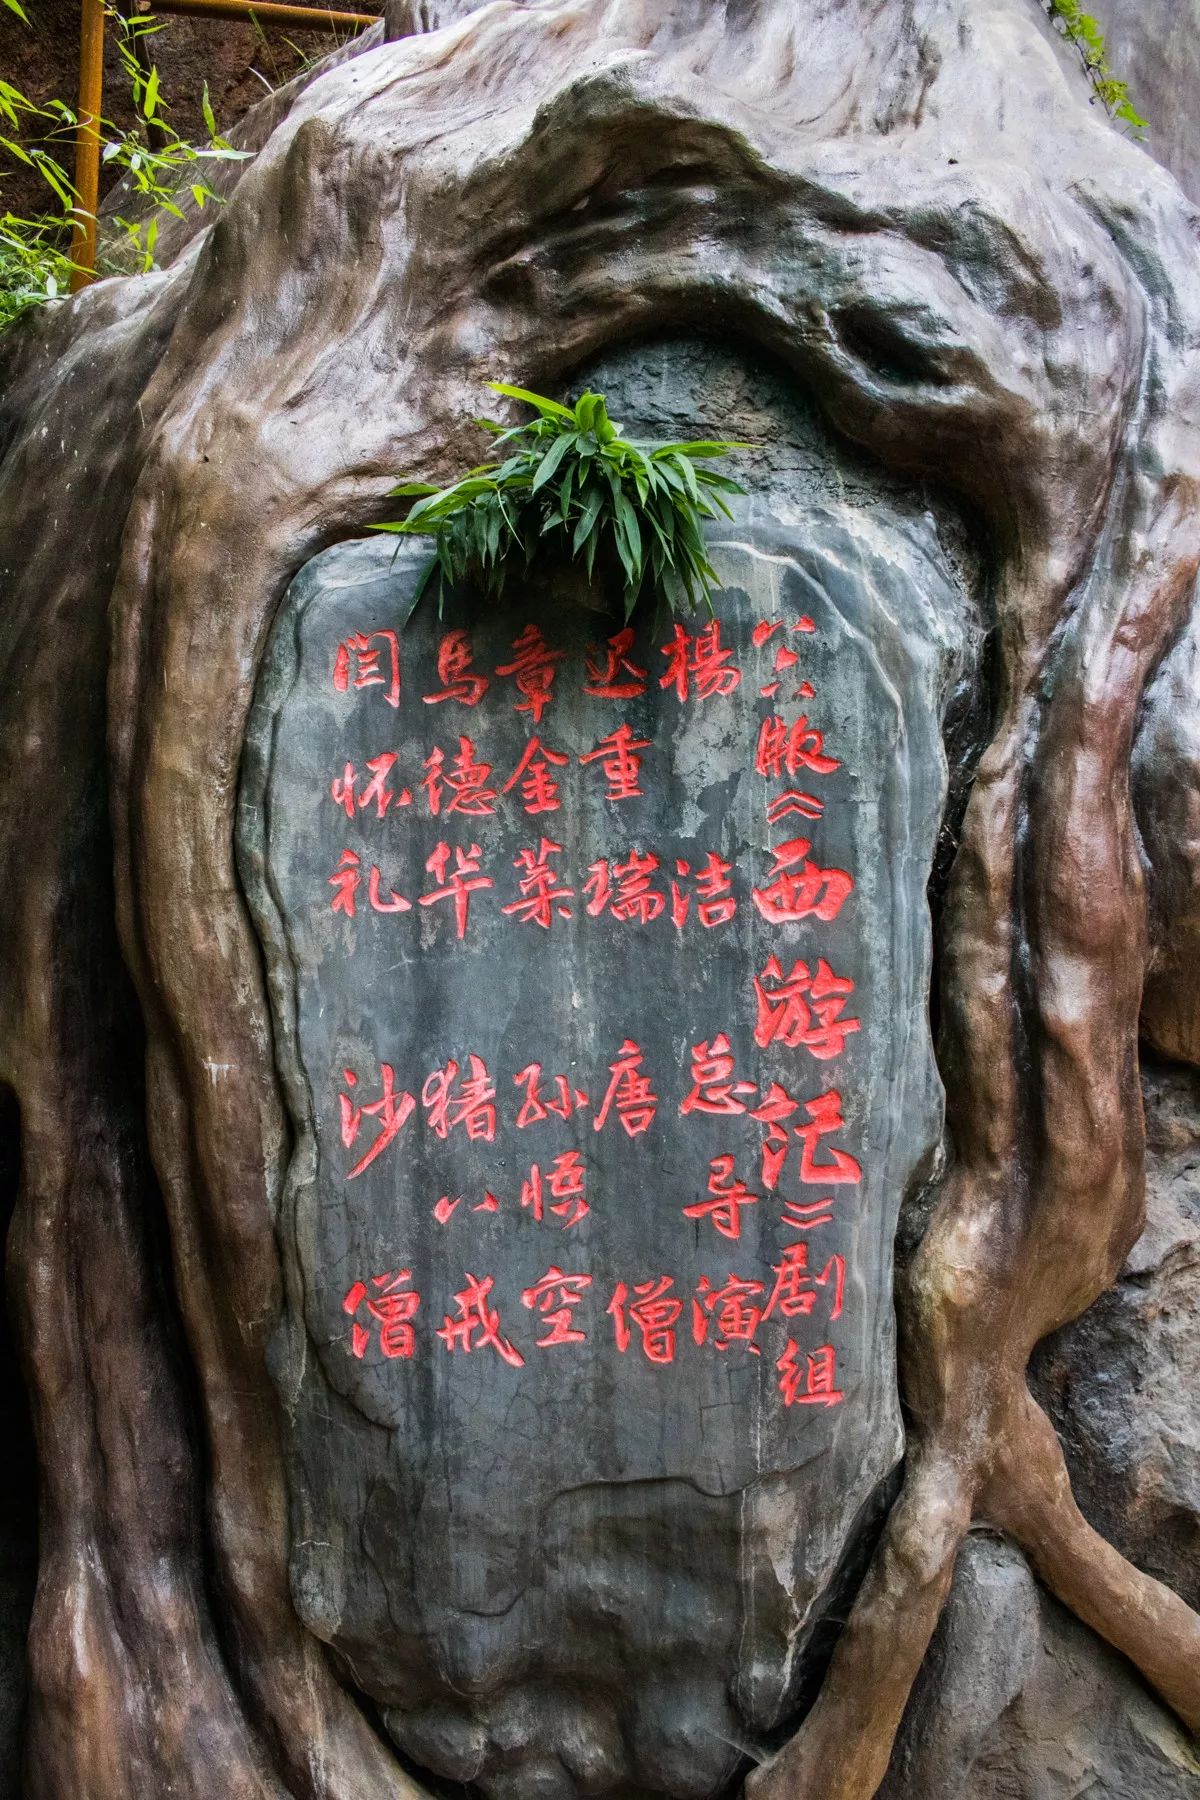 八六版《西游记》剧组
楊洁 总导演
迟重瑞 唐僧
章金莱 孙悟空
马德华 猪八戒
闫怀礼 沙僧